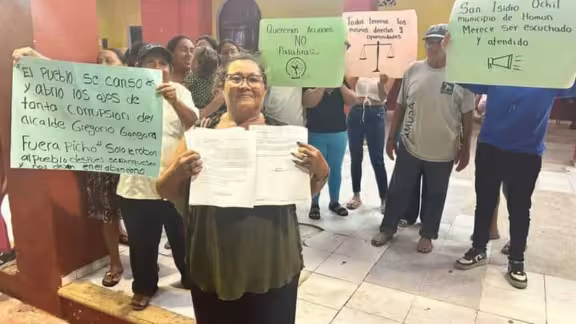 El Pueblo se canso
y abrio los ojos de
tanta corrupsion del
alcalde Gregorio Gongora
Fuera Picho" Solo le roban
al pueblo
y nos dejan en el abandono
Queremos Acciones
No
Palabras
Todos tenemos los
mismos derechos y
oportunidades
San Isidro Ochil
municipio de Homun
Merece ser escuchado
y atendido